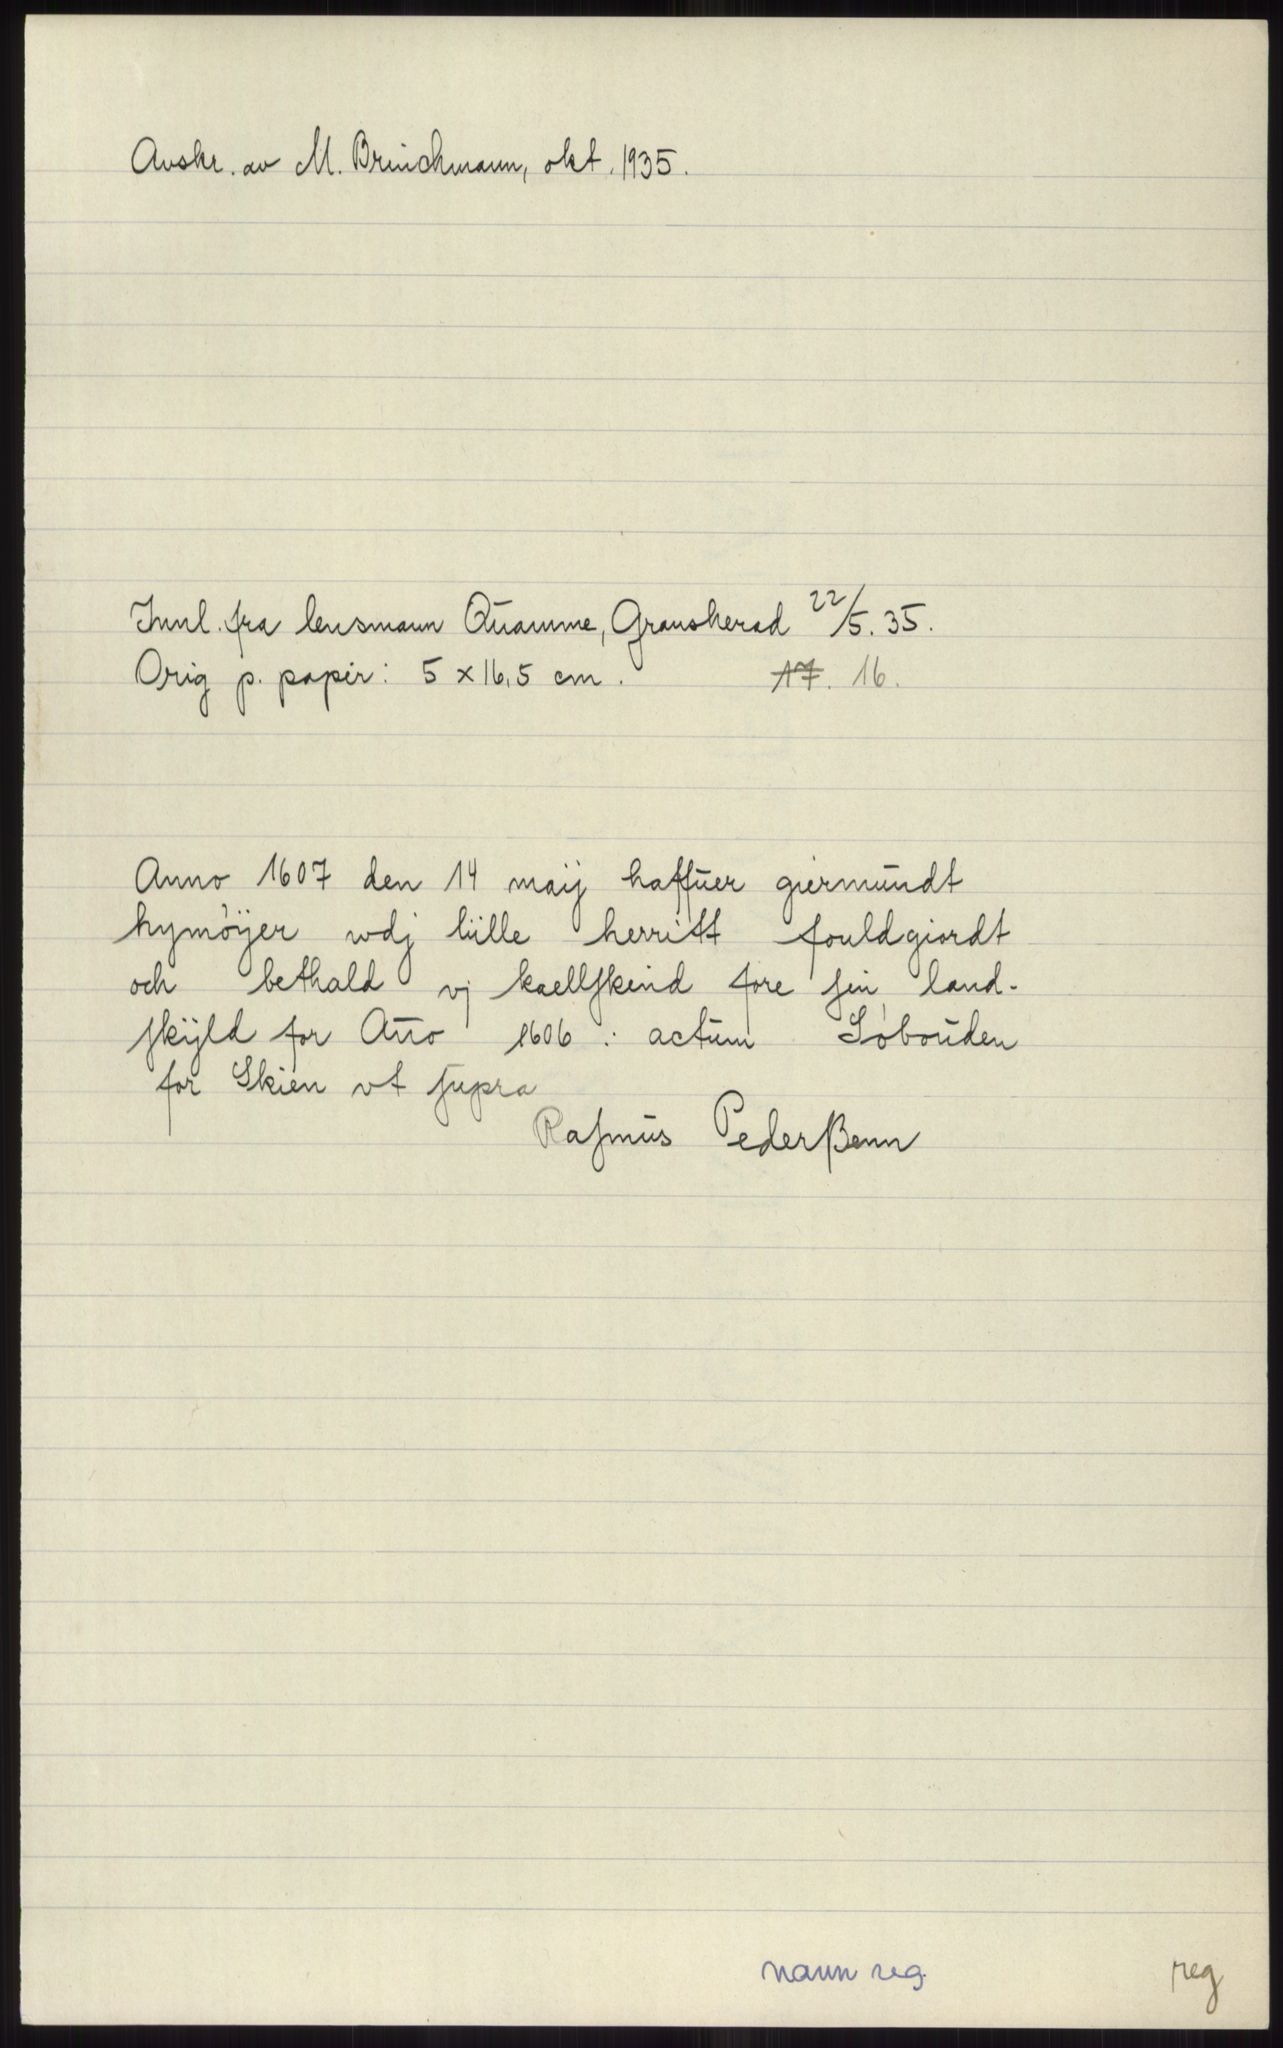 Avskr. av M. Brinchmann, okt. 1935.
Innl. fra lensmann Quamme, Gransherad 22/5. 35.
Orig p. papir: 5 x 16,5 cm. 17. 16.
Anno 1607 den 14 maij haffuer giermundt
hymøyer wdj lille herritt fouldgiordt
och bethald vj kaellſkind fore ſin land-
ſkÿld for Año 1606 : actum Søbouden
for Skien vt ſupra
Raſmus Pederßenn
navn reg.
reg